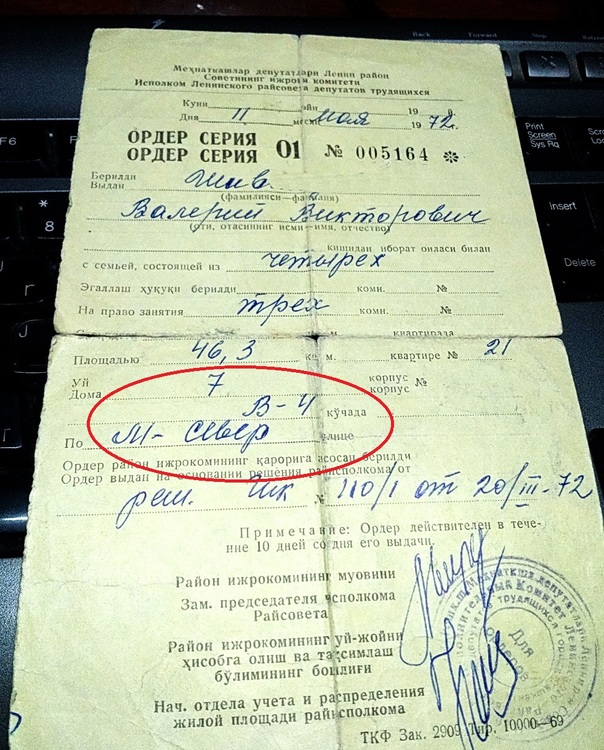 Меҳнаткашлар депутатлари Ленин район
Советининг ижроия комитети
Исполком Ленинского райсовета депутатов трудящихся
Куни ойи 19 й.
Дня 11 месяц мая 1972г.
ОРДЕР СЕРИЯ
ОРДЕР СЕРИЯ 01 № 005164 ✻
Берилди
Выдан
(фамилияси—фамилия)
Валерий Викторович
(оти, отасининг исми—имя, отчество)
кишидан иборат оиласи билан
с семьей, состоящей из четырех
Эгаллаш ҳуқуқи берилди комн. №
На право занятия трех комн. №
м. квартирада
Площадью 46,3 кв. м. квартире № 21
Уй корпус
Дома 7 корпус №
В-4 кўчада
По М- Север улице
Ордер район ижрокомининг қарорига асосан берилди
Ордер выдан на основании решения райисполкома от
реш. ИК № 110/1 от 20/III-72
Примечание: Ордер действителен в тече-
ние 10 дней со дня его выдачи.
Район ижрокомининг муовини
Зам. председателя исполкома
Райсовета
Район ижрокомининг уй-жойни
ҳисобга олиш ва тақсимлаш
бўлимининг бошлиғи
Нач. отдела учета и распределения
жилой площади райисполкома
ТКФ Зак. 2909 Тир. 10000—69
Для
Back
Forward
Stop
F6
Print
Screen
Sys Rq
Scroll
Lock
*
8
Insert
Delete